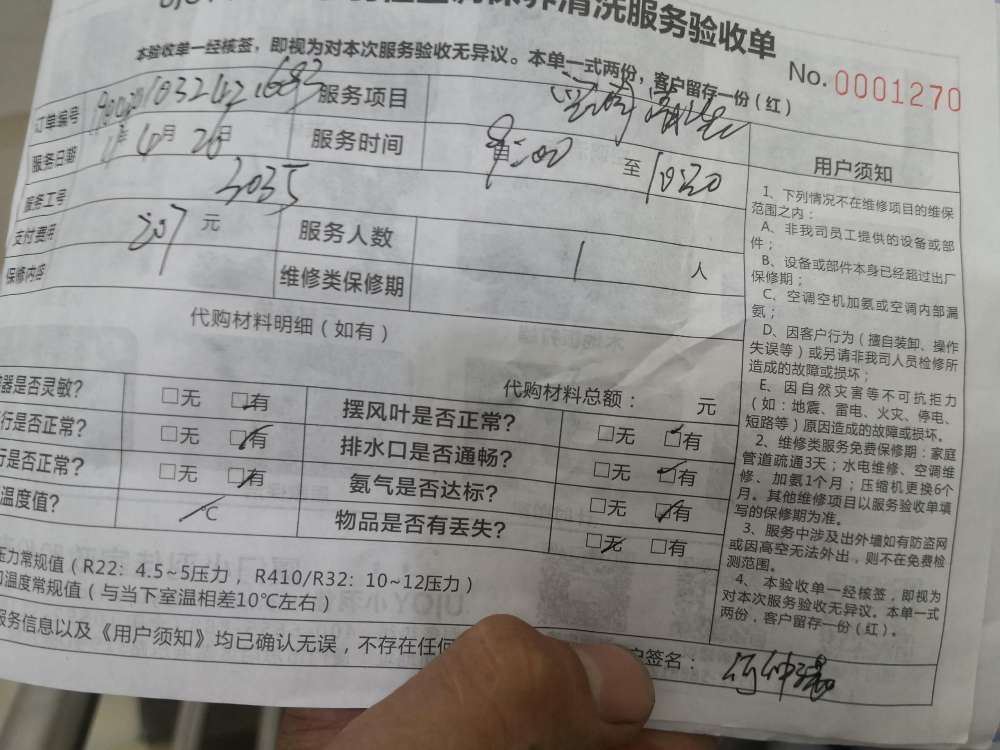 保养清洗服务验收单
本验收单一经核签，即视为对本次服务验收无异议。本单一式两份，客户留存一份（红）
No. 0001270
订单编号 服务项目
服务日期 年 4月 26日 服务时间 自 9:00 至 10:20
服务工号 3035
支付费用 207 元 服务人数 1 人
保修内容 维修类保修期
代购材料明细（如有）
代购材料总额： 元
器是否灵敏？ □无 □有 摆风叶是否正常？ □无 □有
行是否正常？ □无 □有 排水口是否通畅？ □无 □有
行是否正常？ □无 □有 氨气是否达标？ □无 □有
温度值？ ℃ 物品是否有丢失？ □无 □有
压力常规值（R22：4.5~5压力，R410/R32：10~12压力）
温度常规值（与当下室温相差10℃左右）
服务信息以及《用户须知》均已确认无误，不存在任何
签名：
用户须知
1、下列情况不在维修项目的维保
范围之内：
A、非我司员工提供的设备或部
件；
B、设备或部件本身已经超过出厂
保修期；
C、空调空机加氨或空调内部漏
氨；
D、因客户行为（擅自装卸、操作
失误等）或另请非我司人员检修所
造成的故障或损坏；
E、因自然灾害等不可抗拒力
（如：地震、雷电、火灾、停电、
短路等）原因造成的故障或损坏。
2、维修类服务免费保修期：家庭
管道疏通3天；水电维修、空调维
修、加氨1个月；压缩机更换6个
月。其他维修项目以服务验收单填
写的保修期为准。
3、服务中涉及出外墙如有防盗网
或因高空无法外出，则不在免费检
测范围。
4、本验收单一经核签，即视为
对本次服务验收无异议。本单一式
两份，客户留存一份（红）。